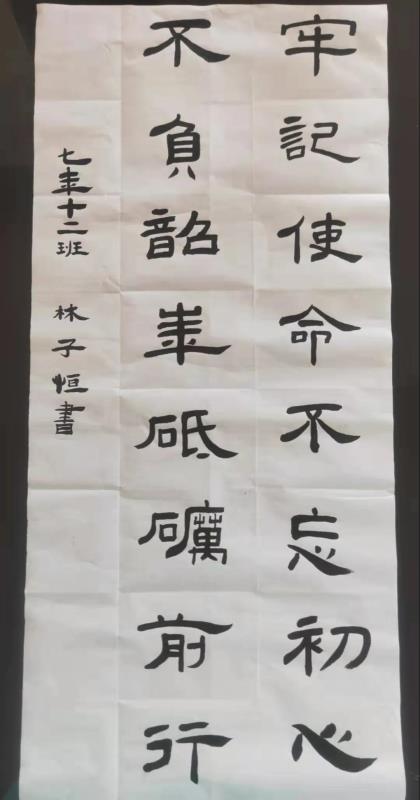 牢記使命不忘初心
不負韶年砥礪前行
七年十二班 林子恒書